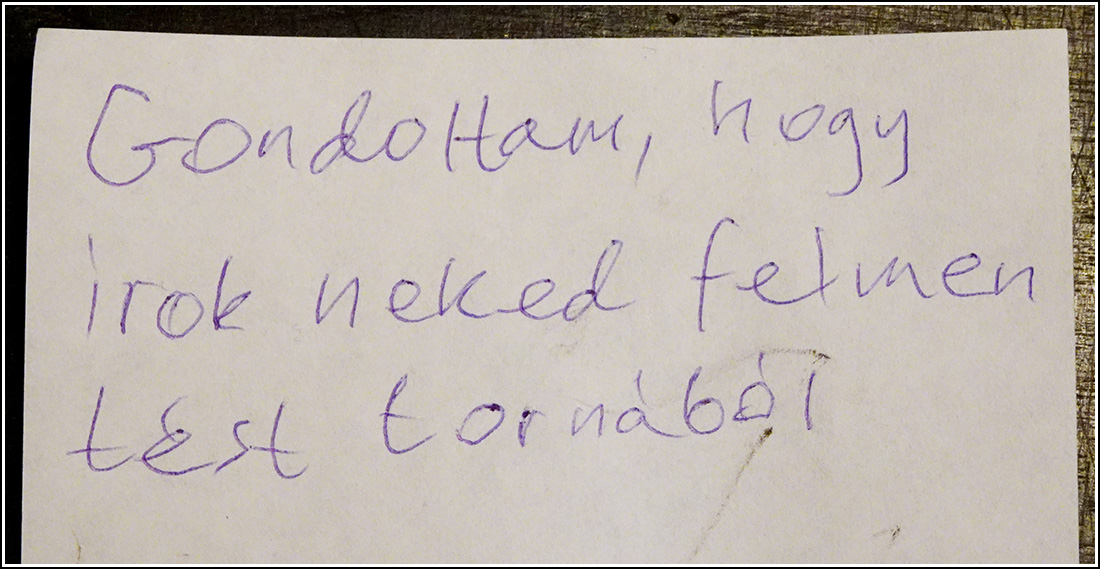 Gondoltam, hogy
írok neked felmen
tést tornából